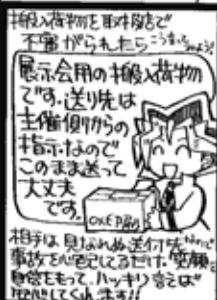 搬入荷物を取扱店で
不審がられたらこう言っちゃおう!
展示会用の搬入荷物
です。送り先は
主催側からの
指示なので
このまま送って
大丈夫
です。
相手は見なれぬ送付先なので
事故を心配してるだけ。笑顔で
自信をもって、ハッキリ言えば
安心してくれます!!